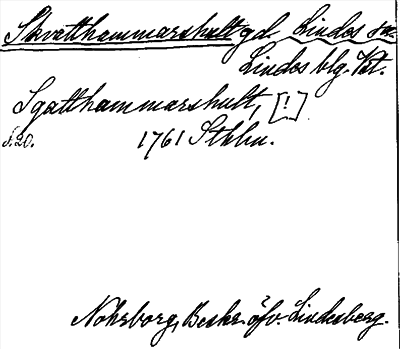 Skvatthammarshult gd. Lindes sn.
Lindes blg. Vst.
Sgatthammarshult, [!]
s. 20. 1761 Sthlm.
Nohrborg, Beskr. öfv. Lindesberg.